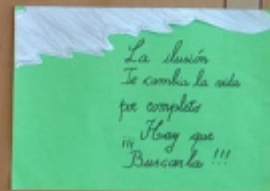 La ilusión
Te cambia la vida
por completo
¡¡¡ Hay que
Buscarla !!!